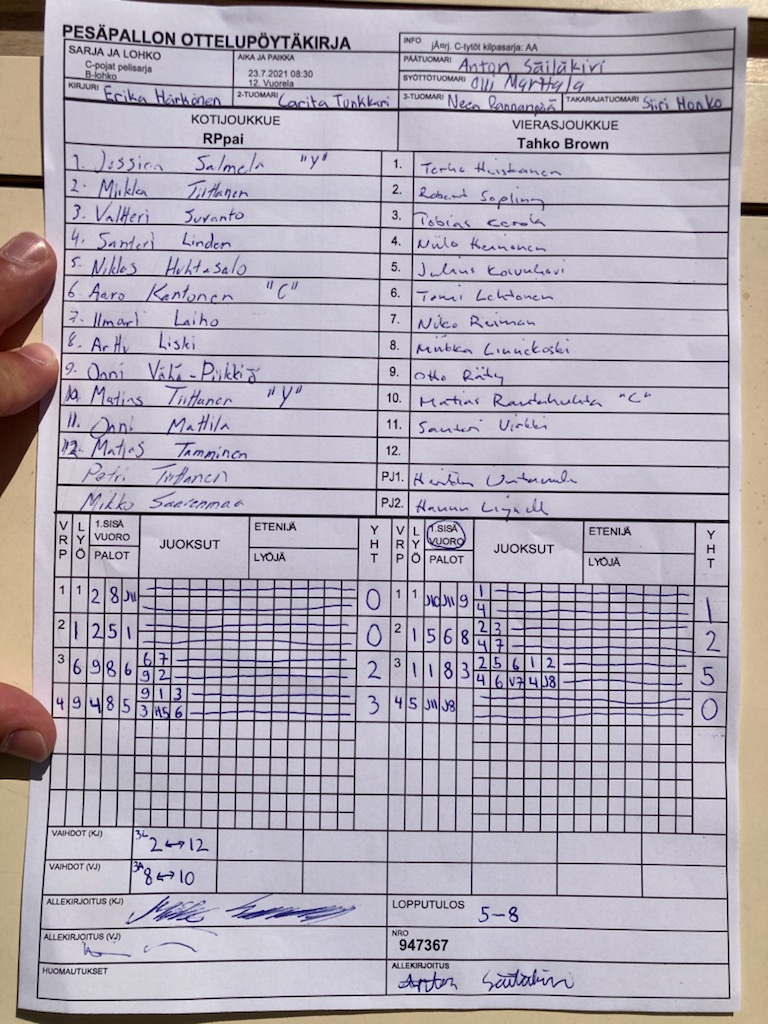 PESÄPALLON OTTELUPÖYTÄKIRJA
SARJA JA LOHKO
C-pojat pelisarja
B-lohko
AIKA JA PAIKKA
23.7.2021 08:30
12. Vuorela
INFO
jÄ¤rj. C-tytöt kilpasarja: AA
PÄÄTUOMARI Anton Säiläkivi
SYÖTTÖTUOMARI Olli Marttala
KIRJURI Erika Härkönen
2-TUOMARI Carita Tunkkari
3-TUOMARI Neea
TAKARAJATUOMARI Siiri Honko
KOTIJOUKKUE
RPpai
VIERASJOUKKUE
Tahko Brown
1. Jessica Salmela "Y"
2. Miikka Tiittanen
3. Valtteri Suvanto
4. Santeri Linden
5. Niklas Huhtasalo
6. Aaro Kantonen "C"
7. Ilmari Laiho
8. Arttu Liski
9. Onni Vähä-Piikkiö
10. Matias Tiittanen "Y"
11. Onni Mattila
12. Matias Tamminen
Petri Tiittanen
Mikko Saarenmaa
1. Terho Heiskanen
2. Robert
3. Tobias
4. Niilo Heinonen
5. Julius Koivuhovi
6. Tomi Lehtonen
7. Niko Reiman
8. Miikka Linnikoski
9. Otto Räty
10. Matias Rautahuhta "C"
11. Santeri Virkki
12.
PJ1.
PJ2. Hannu
VRP LYÖ 1.SISÄ VUORO PALOT JUOKSUT ETENIJÄ LYÖJÄ YHT
VRP LYÖ 1.SISÄ VUORO PALOT JUOKSUT ETENIJÄ LYÖJÄ YHT
1 1 2 8 J11 0
1 1 J10 J11 9 1 1
4
2 1 2 5 1 0
2 1 5 6 8 2 3 2
4 7
3 6 9 8 6 6 7 2
9 2
3 1 1 8 3 2 5 6 1 2 5
4 6 V7 4 J8
4 9 4 8 5 9 1 3 3
3 H5 6
4 5 J11 J8 0
VAIHDOT (KJ) 3L 2↔12
VAIHDOT (VJ) 3A 8↔10
ALLEKIRJOITUS (KJ)
LOPPUTULOS 5-8
ALLEKIRJOITUS (VJ)
NRO
947367
HUOMAUTUKSET
ALLEKIRJOITUS
Anton Säiläkivi